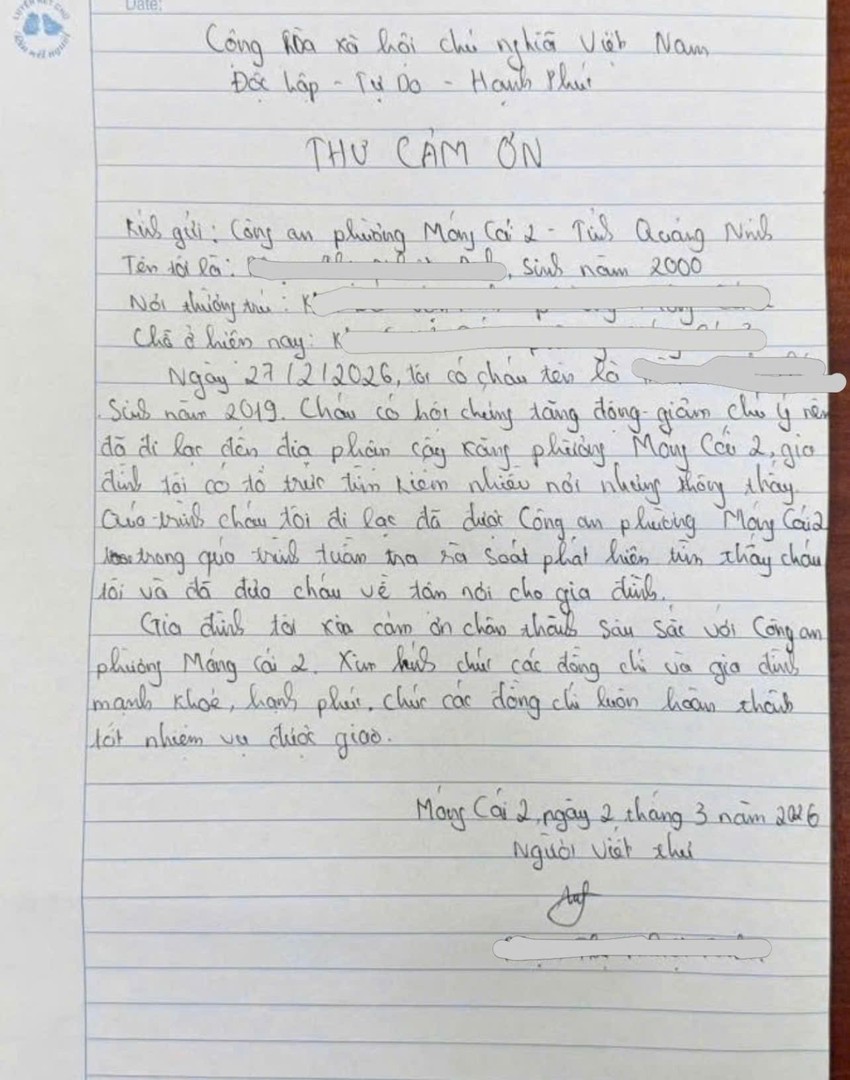 Date:
LUYỆN NÉT CHỮ
Rèn nết người
Cộng hòa xã hội chủ nghĩa Việt Nam
Độc lập - Tự Do - Hạnh Phúc
THƯ CẢM ƠN
Kính gửi: Công an phường Móng Cái 2 - Tỉnh Quảng Ninh
Tên tôi là: , Sinh năm 2000
Nơi thường trú: K
Chỗ ở hiện nay: K
Ngày 27/2/2026, tôi có cháu tên là
Sinh năm 2019. Cháu có hội chứng tăng động-giảm chú ý nên
đã đi lạc đến địa phận cây xăng phường Móng Cái 2, gia
đình tôi có tổ trức tìm kiếm nhiều nơi nhưng không thấy.
Quá trình cháu tôi đi lạc đã được Công an phường Móng Cái 2
trong quá trình tuần tra rà soát phát hiện tìn thấy cháu
tôi và đã đưa cháu về tận nơi cho gia đình.
Gia đình tôi xin cảm ơn chân thành sâu sắc với Công an
phường Móng Cái 2. Xin kính chúc các đồng chí và gia đình
mạnh khoẻ, hạnh phúc, chúc các đồng chí luôn hoàn thành
tốt nhiệm vụ được giao.
Móng Cái 2, ngày 2 tháng 3 năm 2026
Người viết thư